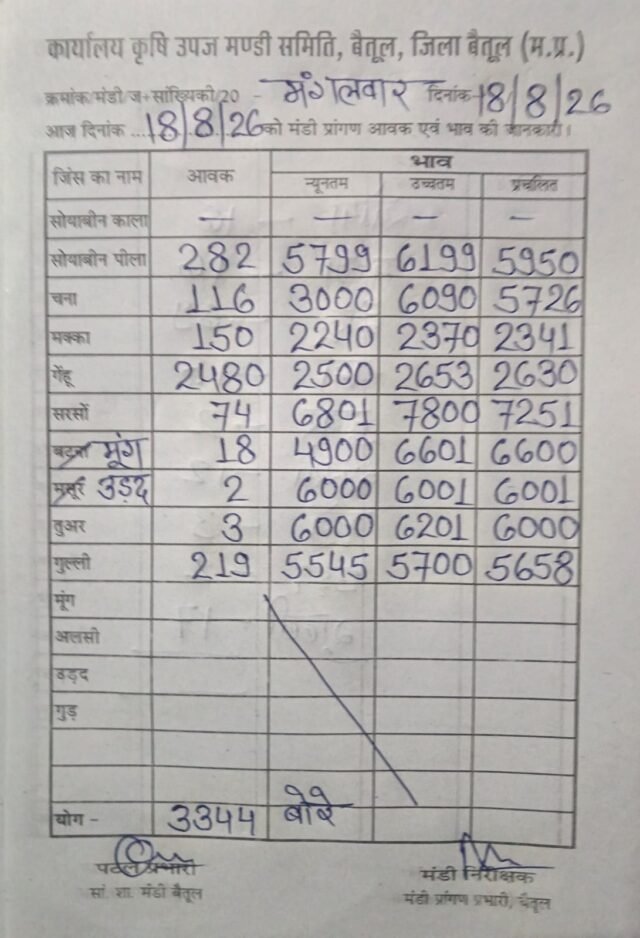 कार्यालय कृषि उपज मण्डी समिति, बैतूल, जिला बैतूल (म.प्र.)
क्रमांक/मंडी/ज+सांख्यिकी/20 - मंगलवार दिनांक 18/8/26
आज दिनांक ...18/8/26 को मंडी प्रांगण आवक एवं भाव की जानकारी।
जिंस का नाम आवक भाव
न्यूनतम उच्चतम प्रचलित
सोयाबीन काला — — — —
सोयाबीन पीला 282 5799 6199 5950
चना 116 3000 6090 5726
मक्का 150 2240 2370 2341
गेंहू 2480 2500 2653 2630
सरसों 74 6801 7800 7251
बटरा मूंग 18 4900 6601 6600
मसूर उड़द 2 6000 6001 6001
तुअर 3 6000 6201 6000
गुल्ली 219 5545 5700 5658
मूंग
अलसी
उड़द
गुड़
योग - 3344 बोरे
प्रभारी मंडी निरीक्षक
सां. शा. मंडी बैतूल मंडी प्रांगण प्रभारी, बैतूल